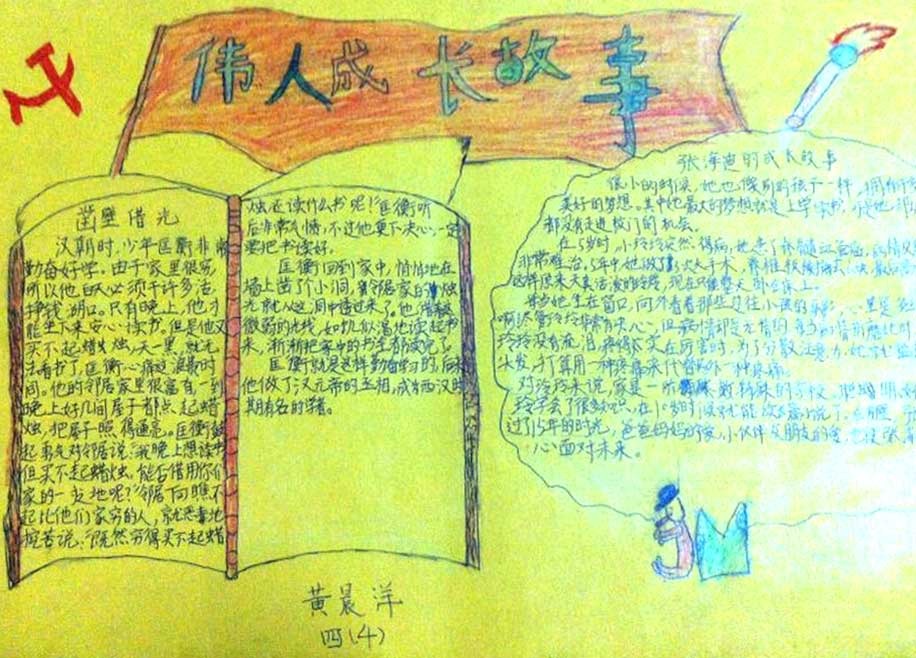 伟人成长故事
凿壁借光
汉朝时,少年匡衡非常
勤奋好学。由于家里很穷,
所以他白天必须干许多活,
挣钱糊口。只有晚上,他才
能坐下来安心读书。但是他又
买不起蜡烛,天一黑,就无
法看书了。匡衡心痛这浪费时
间。他的邻居家里很富有,一到
晚上好几间屋子都点起蜡
烛,把屋子照得通亮。匡衡鼓
起勇气对邻居说:我晚上想读书
但买不起蜡烛,能否借用你们
家的一寸之地呢?邻居向瞧不
起比他们家穷的人,就恶毒地
挖苦说:既然穷得买不起蜡
烛,还读什么书呢!匡衡听
后非常气愤,不过他更下决心,一定
要把书读好。
匡衡回到家中,悄悄地在
墙上凿了个小洞,邻居家的烛
光就从这洞中透过来了。他借着
微弱的光线,如饥似渴地读起书
来,渐渐把家中的书全都读完了。
匡衡就是这样勤奋学习的,后来
他做了汉元帝的丞相,成为西汉时
期有名的学者。
张海迪的成长故事
很小的时候,她也像别的孩子一样,拥有
美好的梦想。其中她最大的梦想就是上学读书,
都没有走进校门的机会。
在5岁时,小玲玲突然得病,她患了脊髓血管瘤,
非常难治。5年中,她做了3次大手术,脊椎
这样原来天真活泼的玲玲,现在只能整天卧在床上。
每当她坐在窗口,向外看着那些过往小孩的
玲玲没有流泪,疼得不实在厉害时,为了分散注意力,她
头发,打算用一种疼痛来代替另外一种疼痛。
对玲玲来说,家是一所特殊的学校。
玲学会了很多知识,在10岁时候就能
过了15年的时光,爸爸妈妈的家,小伙伴及朋友的爱,
心面对未来。
黄晨洋
四(4)